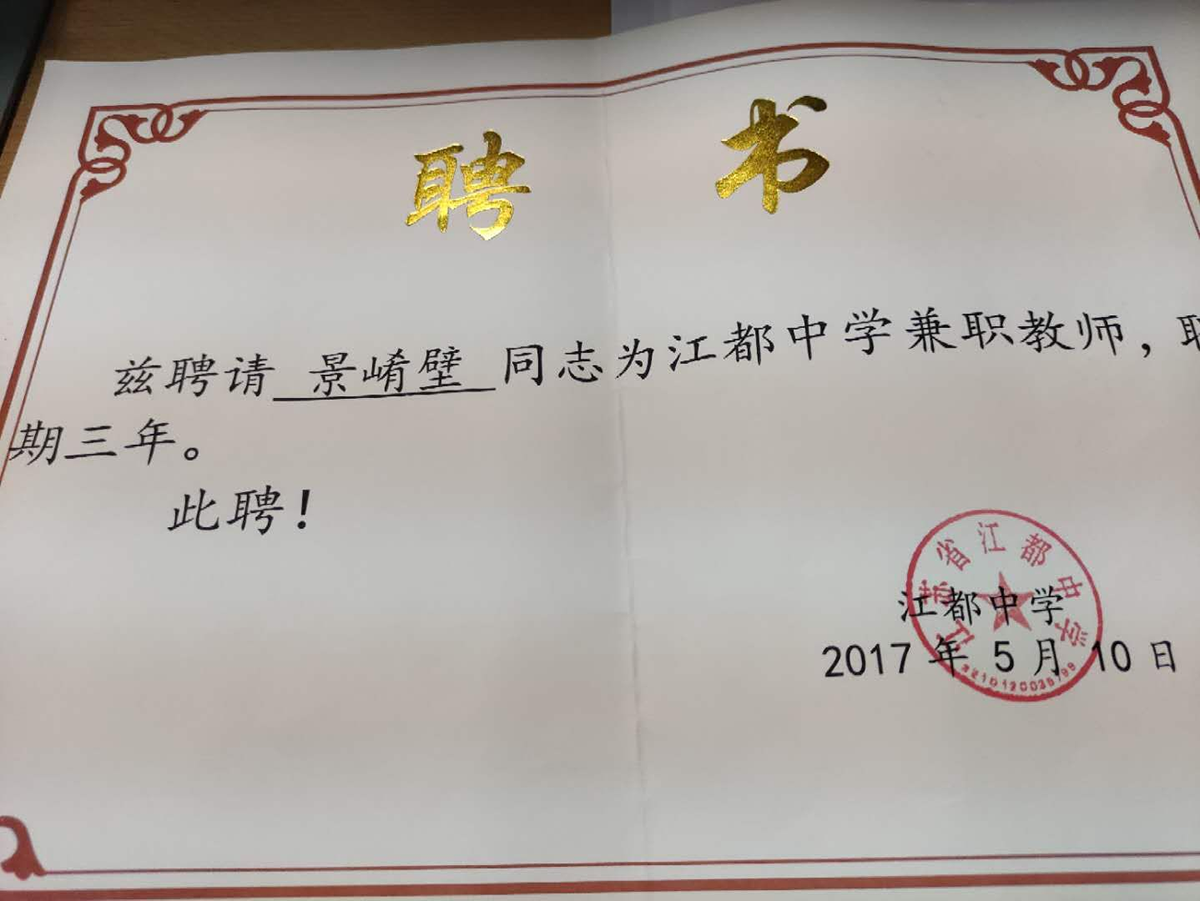 聘书
兹聘请 景崤壁 同志为江都中学兼职教师，聘
期三年。
此聘！
江苏省江都中学
江都中学
2017 年 5 月 10 日